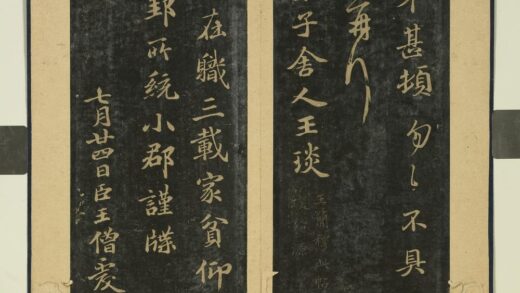 甚頓勿々不具
子舍人王琰
在職三載家貧仰
郢所統小郡謹牒
七月廿四日臣王僧虔